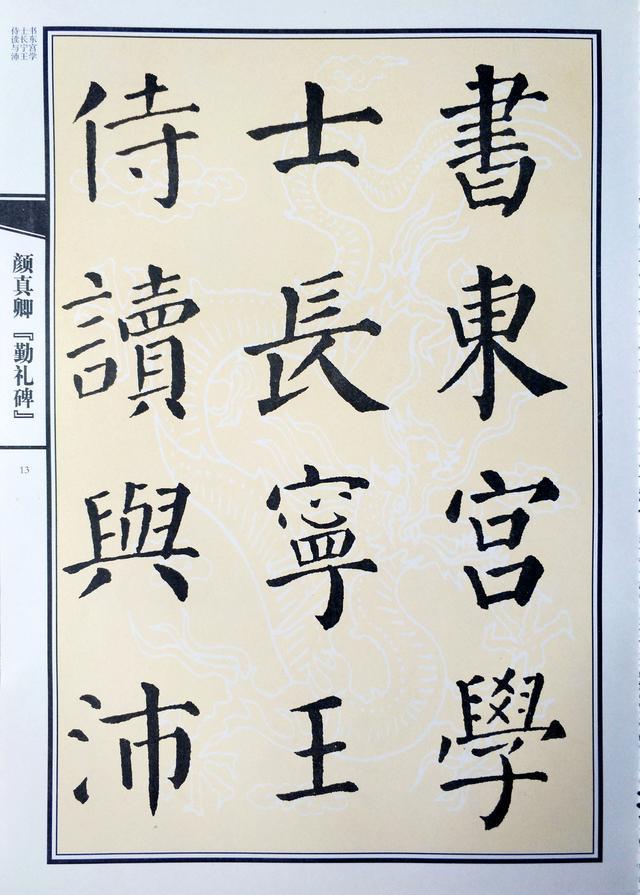 書東宮學
士長寧王
侍讀與沛
书东宫学
士长宁王
侍读与沛
颜真卿『勤礼碑』
13